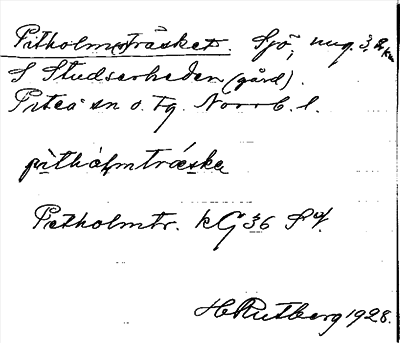 Pitholm(s)träsket. Sjö, ung. 3,2 km
S Studserheden (gård).
Piteå sn o. tg. Norrb. l.
pìthólmtráeska
Pitholmtr. kG 36 S V.
H Rutberg 1928.